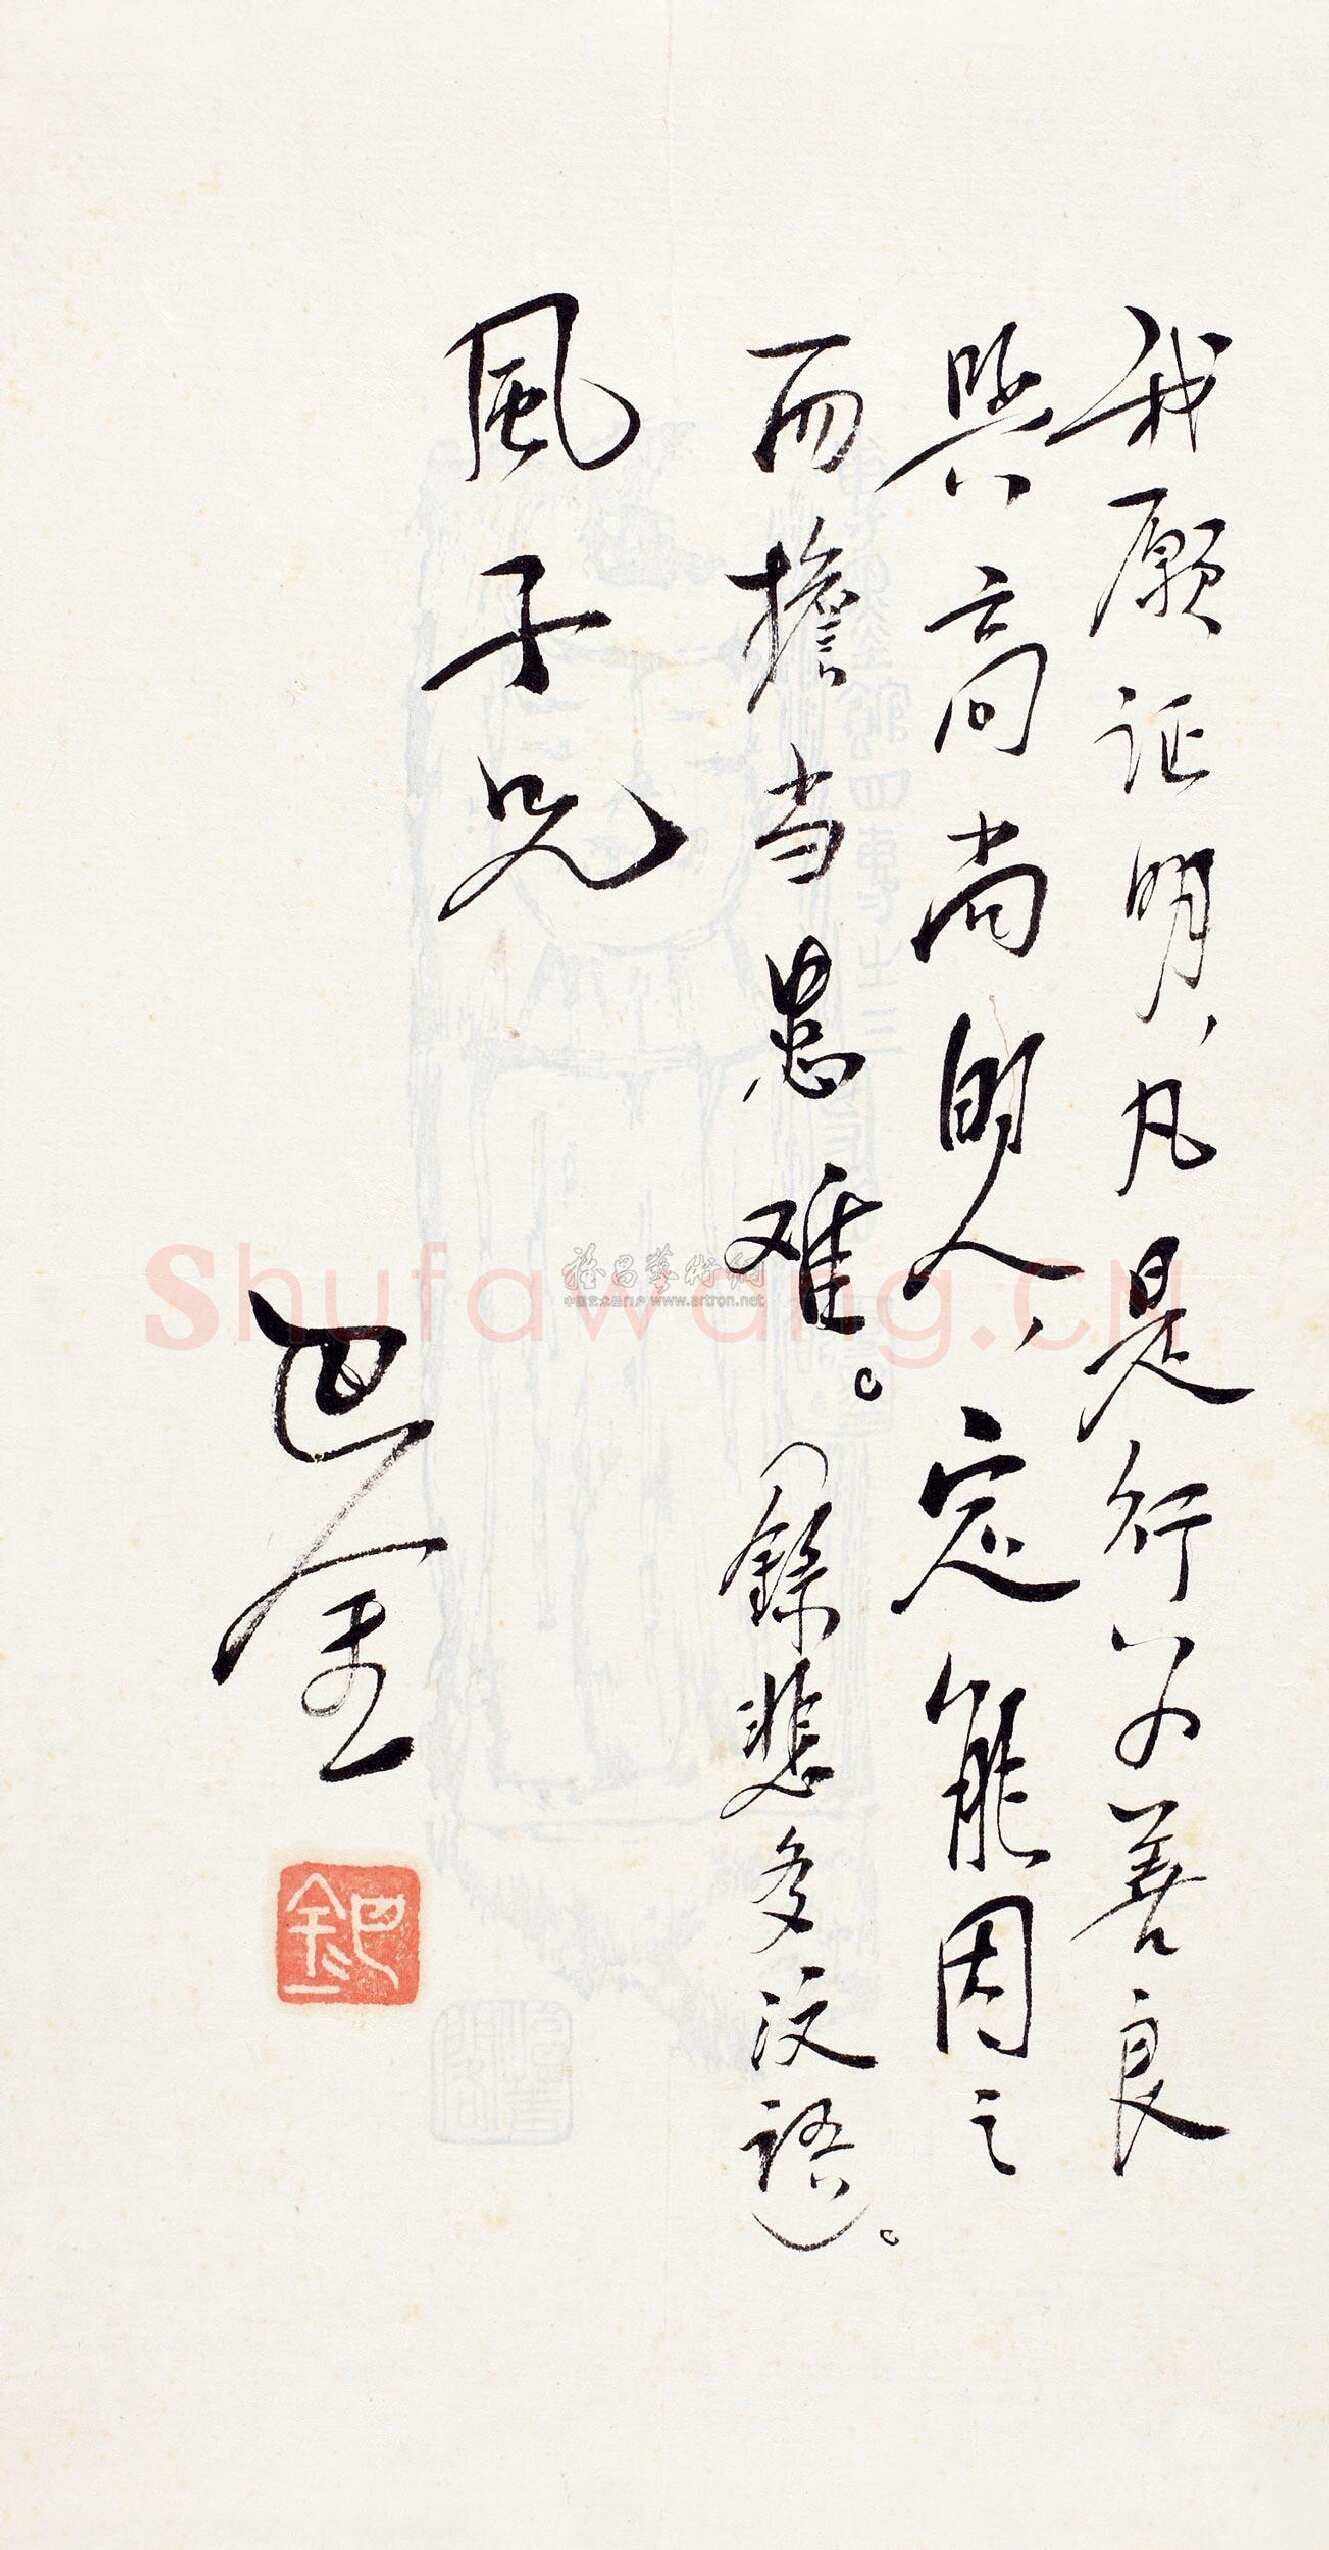 我願证明,凡是行为善良
與高尚的人,定能因之
而擔当患难。(錄悲多汶語)。
風子兄
巴金
巴金
Shufawang.cn
雅昌藝術網
中国艺术品门户 www.artron.net